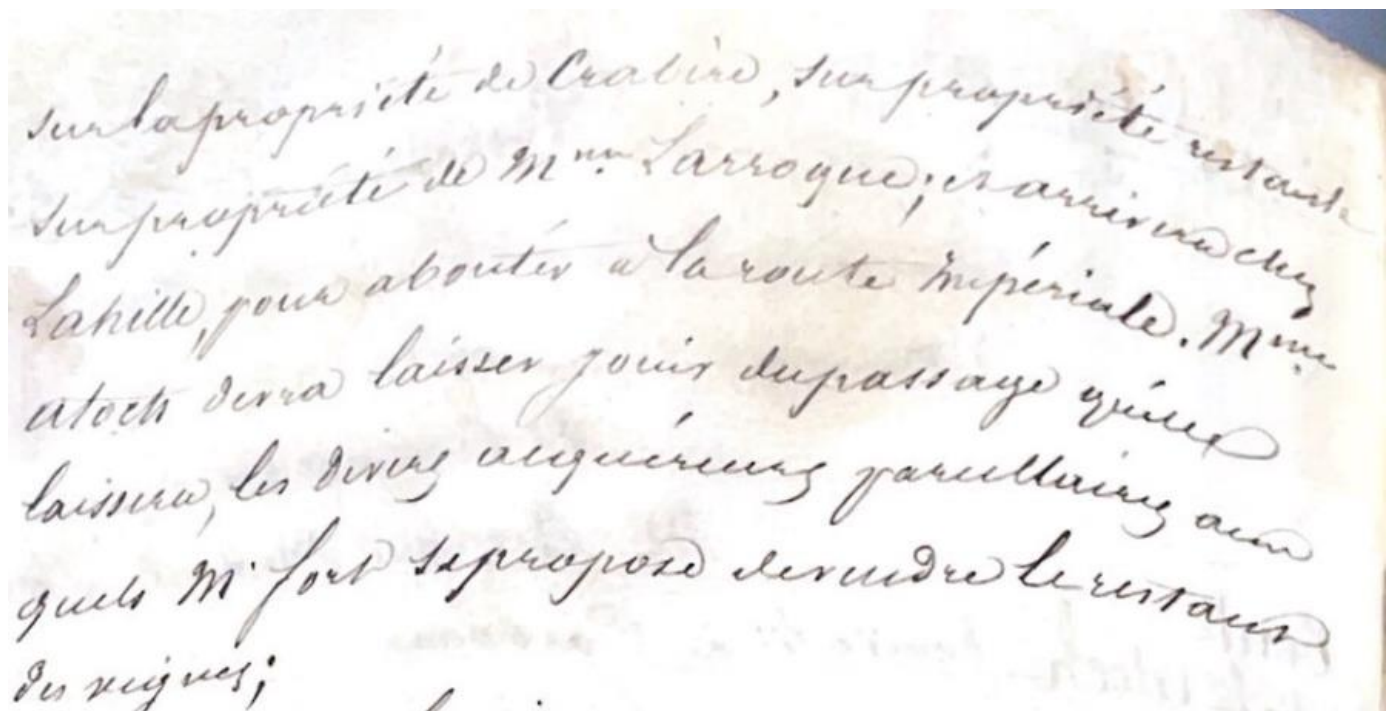 sur la propriété de Crabère, sur propriété restante
sur propriété de Mme Larroque; et arrivera chez
Lahille, pour aboutir à la route Impériale. Mme
devra laisser jouir du passage qu'elle
laissera, les divers acquéreurs parcellaires aux
quels Mr fort se propose de vendre le restant
des vignes;